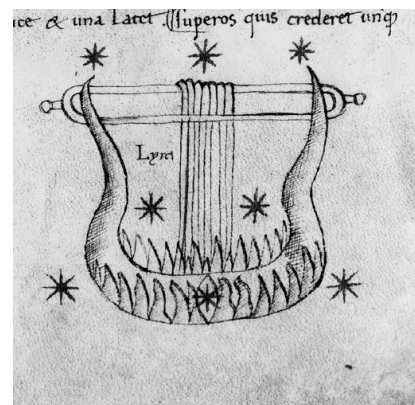 uce & una Latet. Superos quis crederet unq̃
Lyra